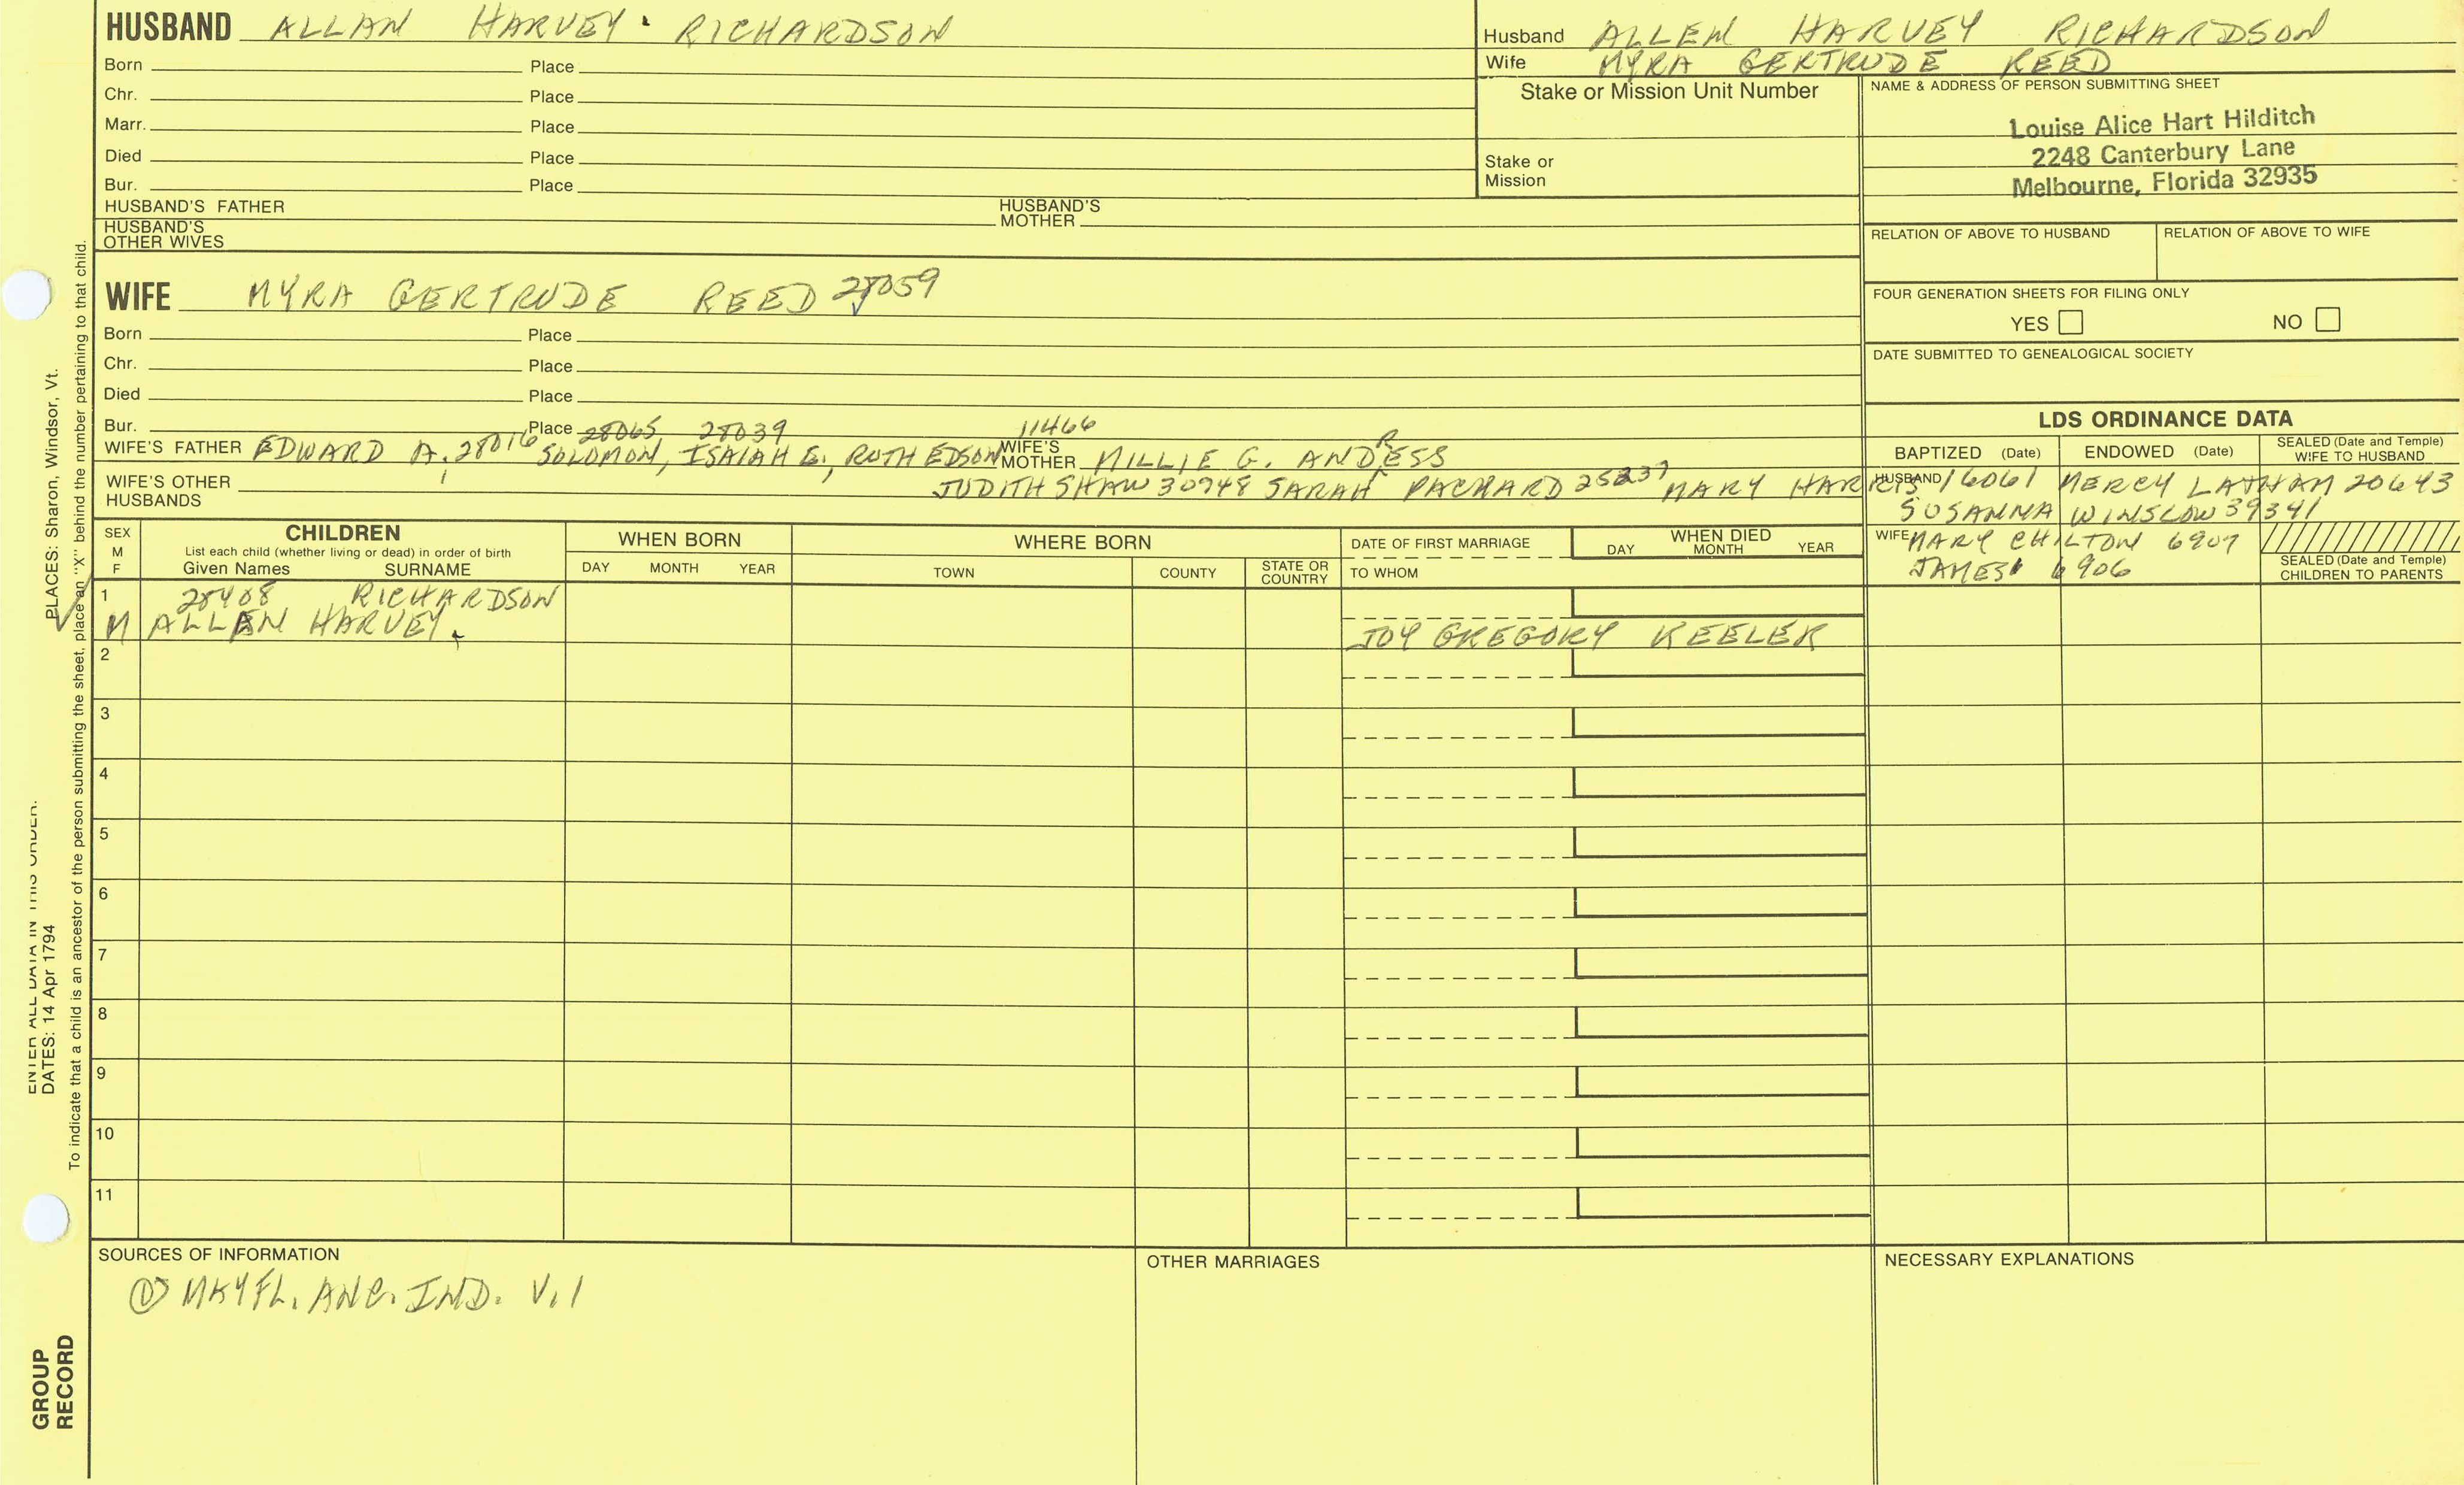 HUSBAND ALLAN HARVEY RICHARDSON
Born Place
Chr. Place
Marr. Place
Died Place
Bur. Place
HUSBAND'S FATHER HUSBAND'S MOTHER
HUSBAND'S OTHER WIVES
Husband ALLEN HARVEY RICHARDSON
Wife MYRA GERTRUDE REED
Stake or Mission Unit Number
Stake or Mission
NAME & ADDRESS OF PERSON SUBMITTING SHEET
Louise Alice Hart Hilditch
2248 Canterbury Lane
Melbourne, Florida 32935
RELATION OF ABOVE TO HUSBAND RELATION OF ABOVE TO WIFE
FOUR GENERATION SHEETS FOR FILING ONLY
YES NO
DATE SUBMITTED TO GENEALOGICAL SOCIETY
WIFE MYRA GERTRUDE REED 28059
Born Place
Chr. Place
Died Place
Bur. Place 28065 28039 11466
WIFE'S FATHER EDWARD A. 28016 SOLOMON, ISAIAH E., RUTH EDSON WIFE'S MOTHER MILLIE G. ANDRESS
WIFE'S OTHER HUSBANDS JUDITH SHAW 30948 SARAH PACKARD 25237 MARY HARRIS 16061 MERCY LATHAM 20643
SUSANNA WINSLOW 39341
MARY CHILTON 6907
JAMES 6906
LDS ORDINANCE DATA
BAPTIZED (Date) ENDOWED (Date) SEALED (Date and Temple) WIFE TO HUSBAND
HUSBAND
WIFE
SEALED (Date and Temple) CHILDREN TO PARENTS
SEX M F
CHILDREN
List each child (whether living or dead) in order of birth
Given Names SURNAME
WHEN BORN
DAY MONTH YEAR
WHERE BORN
TOWN COUNTY STATE OR COUNTRY
DATE OF FIRST MARRIAGE
TO WHOM
WHEN DIED
DAY MONTH YEAR
1 28408 RICHARDSON
M ALLEN HARVEY JOY GREGORY KEELER
2
3
4
5
6
7
8
9
10
11
SOURCES OF INFORMATION
① MKYFL. ANC. IND. V.1
OTHER MARRIAGES
NECESSARY EXPLANATIONS
ENTER ALL DATA IN THIS ORDER:
DATES: 14 Apr 1794
PLACES: Sharon, Windsor, Vt.
To indicate that a child is an ancestor of the person submitting the sheet, place an "X" behind the number pertaining to that child.
GROUP RECORD